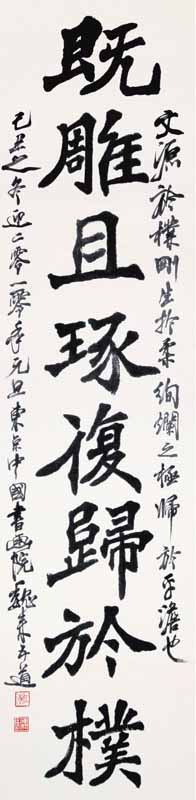 文源於樸剛生於柔絢爛之極歸於平澹也
既雕且琢復歸於樸
己丑之冬迎二零一零年元旦東京中國書畫院魏来五道